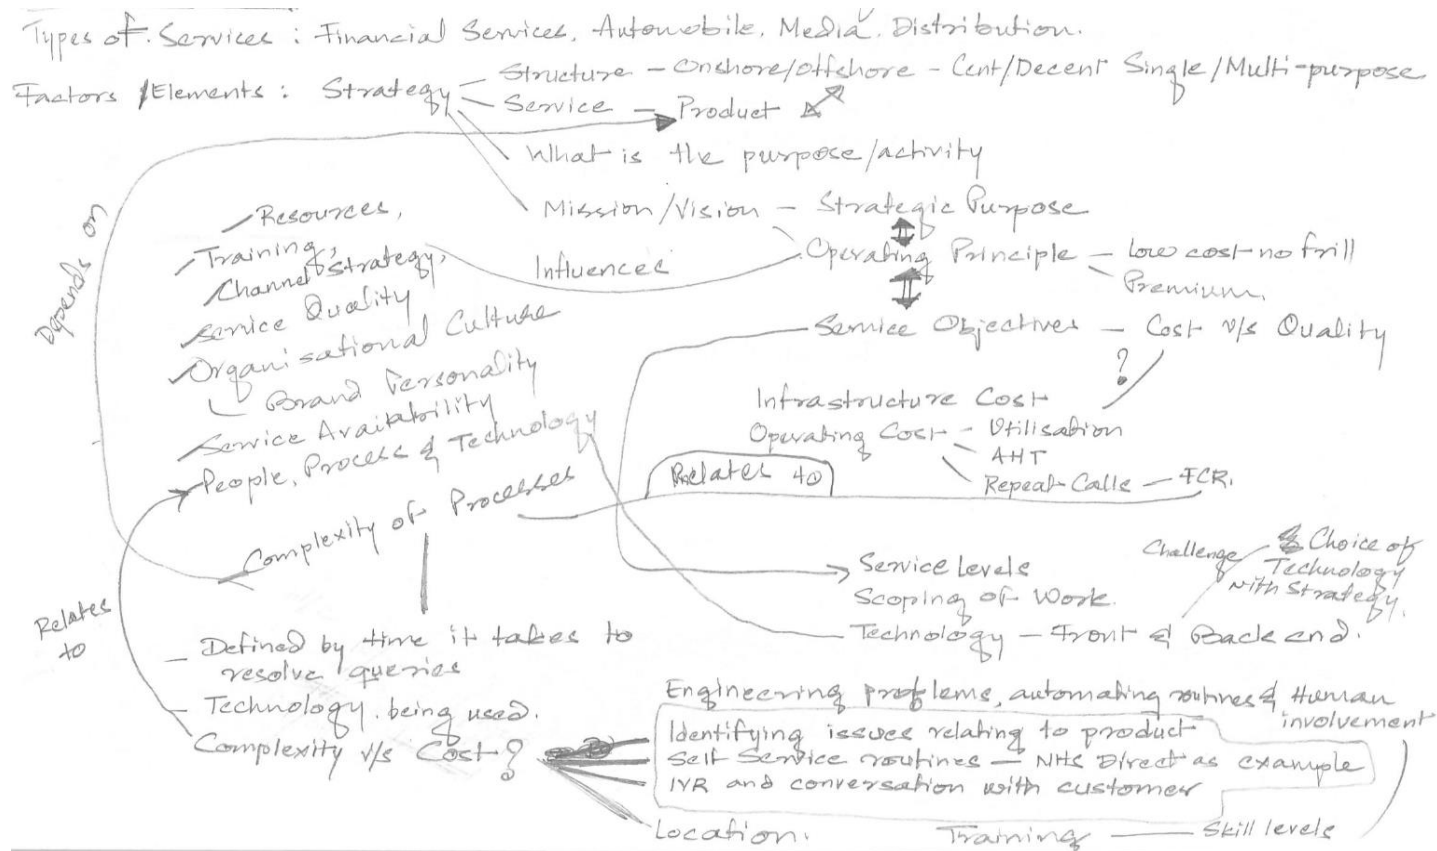 Types of Services : Financial Services, Automobile, Media, Distribution.
Factors /Elements : Strategy
Structure - Onshore/Offshore - Cent/Decent Single/Multi-purpose
Service - Product
What is the purpose/activity
Mission/Vision - Strategic Purpose
Operating Principle - Low cost-no frill
Premium.
Service Objectives - Cost v/s Quality
?
Depends on
Resources,
Training,
Channel Strategy,
Influences
Service Quality
Organisational Culture
Brand Personality
Service Availability
People, Process & Technology
Complexity of Processes
Infrastructure Cost
Operating Cost - Utilisation
AHT
Repeat Calls - FCR.
Relates to
Service Levels
Scoping of Work.
Technology - Front & Back end.
Challenge
Choice of
Technology
with Strategy.
Relates
to
- Defined by time it takes to
resolve queries
- Technology being used.
Complexity v/s Cost?
Engineering problems, automating routines & Human
involvement
Identifying issues relating to product
Self Service routines - NHS Direct as example
IVR and conversation with customer
Location. Training - Skill levels